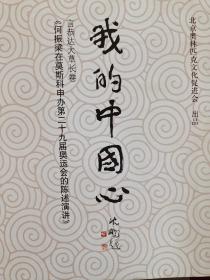 北京奥林匹克文化促进会 出品
我的中国心
言恭达大草长卷
《何振梁在莫斯科申办第二十九届奥运会的陈述演讲》